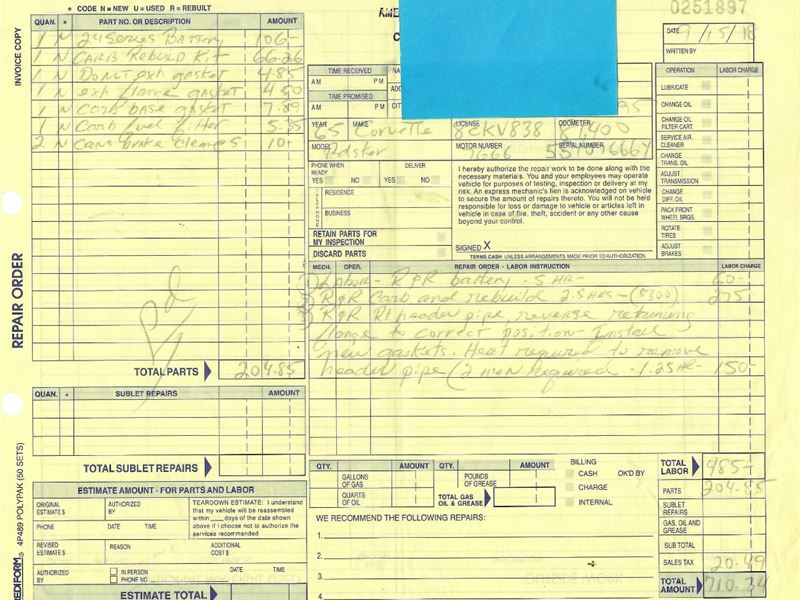 * CODE N = NEW U = USED R = REBUILT
0251897
QUAN. * PART NO. OR DESCRIPTION AMOUNT
INVOICE COPY
1 N 24 Series Battery 106-
1 N CARB Rebuild Kit 66.26
1 N Donut exh gasket 4.85
1 N exh flange gasket 4.50
1 N Carb base gasket 7.89
1 N Carb fuel filter 5.35
2 N Cans brake cleaner 10-
TOTAL PARTS 204.85
Pd
REPAIR ORDER
QUAN. * SUBLET REPAIRS AMOUNT
TOTAL SUBLET REPAIRS
ESTIMATE AMOUNT - FOR PARTS AND LABOR
ORIGINAL ESTIMATE $ AUTHORIZED BY
TEARDOWN ESTIMATE: I understand
that my vehicle will be reassembled
within days of the date shown
above if I choose not to authorize the
services recommended
PHONE DATE TIME
REVISED ESTIMATE $ REASON ADDITIONAL COST $
AUTHORIZED BY IN PERSON PHONE NO. DATE TIME
ESTIMATE TOTAL
REDIFORM® 4P489 POLYPAK (50 SETS)
DATE 9/15/18
WRITTEN BY
TIME RECEIVED
AM PM
TIME PROMISED
AM PM
YEAR 65 MAKE Corvette LICENSE 8CKV838 ODOMETER 87400
MODEL Rdster MOTOR NUMBER SERIAL NUMBER
PHONE WHEN READY YES NO DELIVER YES NO
TELEPHONE
RESIDENCE
BUSINESS
RETAIN PARTS FOR MY INSPECTION
DISCARD PARTS
I hereby authorize the repair work to be done along with the
necessary materials. You and your employees may operate
vehicle for purposes of testing, inspection or delivery at my
risk. An express mechanic's lien is acknowledged on vehicle
to secure the amount of repairs thereto. You will not be held
responsible for loss or damage to vehicle or articles left in
vehicle in case of fire, theft, accident or any other cause
beyond your control.
SIGNED X
TERMS CASH UNLESS ARRANGEMENTS MADE PRIOR TO AUTHORIZATION
OPERATION LABOR CHARGE
LUBRICATE
CHANGE OIL
CHANGE OIL FILTER CART.
SERVICE AIR CLEANER
CHANGE TRANS. OIL
ADJUST TRANSMISSION
CHANGE DIFF. OIL
PACK FRONT WHEEL BRGS.
ROTATE TIRES
ADJUST BRAKES
MECH. OPER. REPAIR ORDER - LABOR INSTRUCTION LABOR CHARGE
1 Labor - R&R battery - .5 HR- 60-
2 R&R Carb and rebuild 2.5 HRS - (5300) 275
3 R&R Rt header pipe, reverse retaining
flange to correct position - Install
new gaskets. Heat required to remove
header pipe (2 men required - 1.25 HR- 150-
QTY. AMOUNT QTY. AMOUNT
GALLONS OF GAS POUNDS OF GREASE
QUARTS OF OIL TOTAL GAS OIL & GREASE
BILLING
CASH OK'D BY
CHARGE
INTERNAL
WE RECOMMEND THE FOLLOWING REPAIRS:
1.
2.
3.
4.
TOTAL LABOR 485-
PARTS 204.85
SUBLET REPAIRS
GAS, OIL AND GREASE
SUB TOTAL
SALES TAX 20.49
TOTAL AMOUNT 710.34